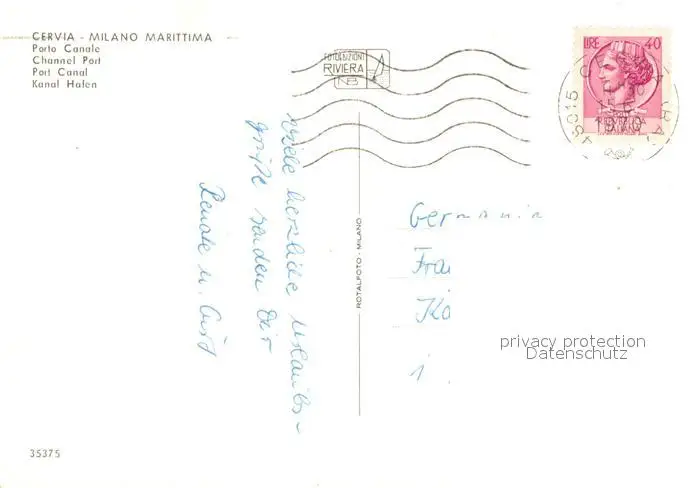 CERVIA - MILANO MARITTIMA
Porto Canale
Channel Port
Port Canal
Kanal Hafen
FOTOEDIZIONI
RIVIERA
LIRE 40
48015 CERVIA (RA)
1970
ITALIANA
Viele herzliche Urlaubs-
grüße senden Dir
Renate u. Curd
ROTALFOTO - MILANO
Germania
Frau
Ko
1.
privacy protection
Datenschutz
35375